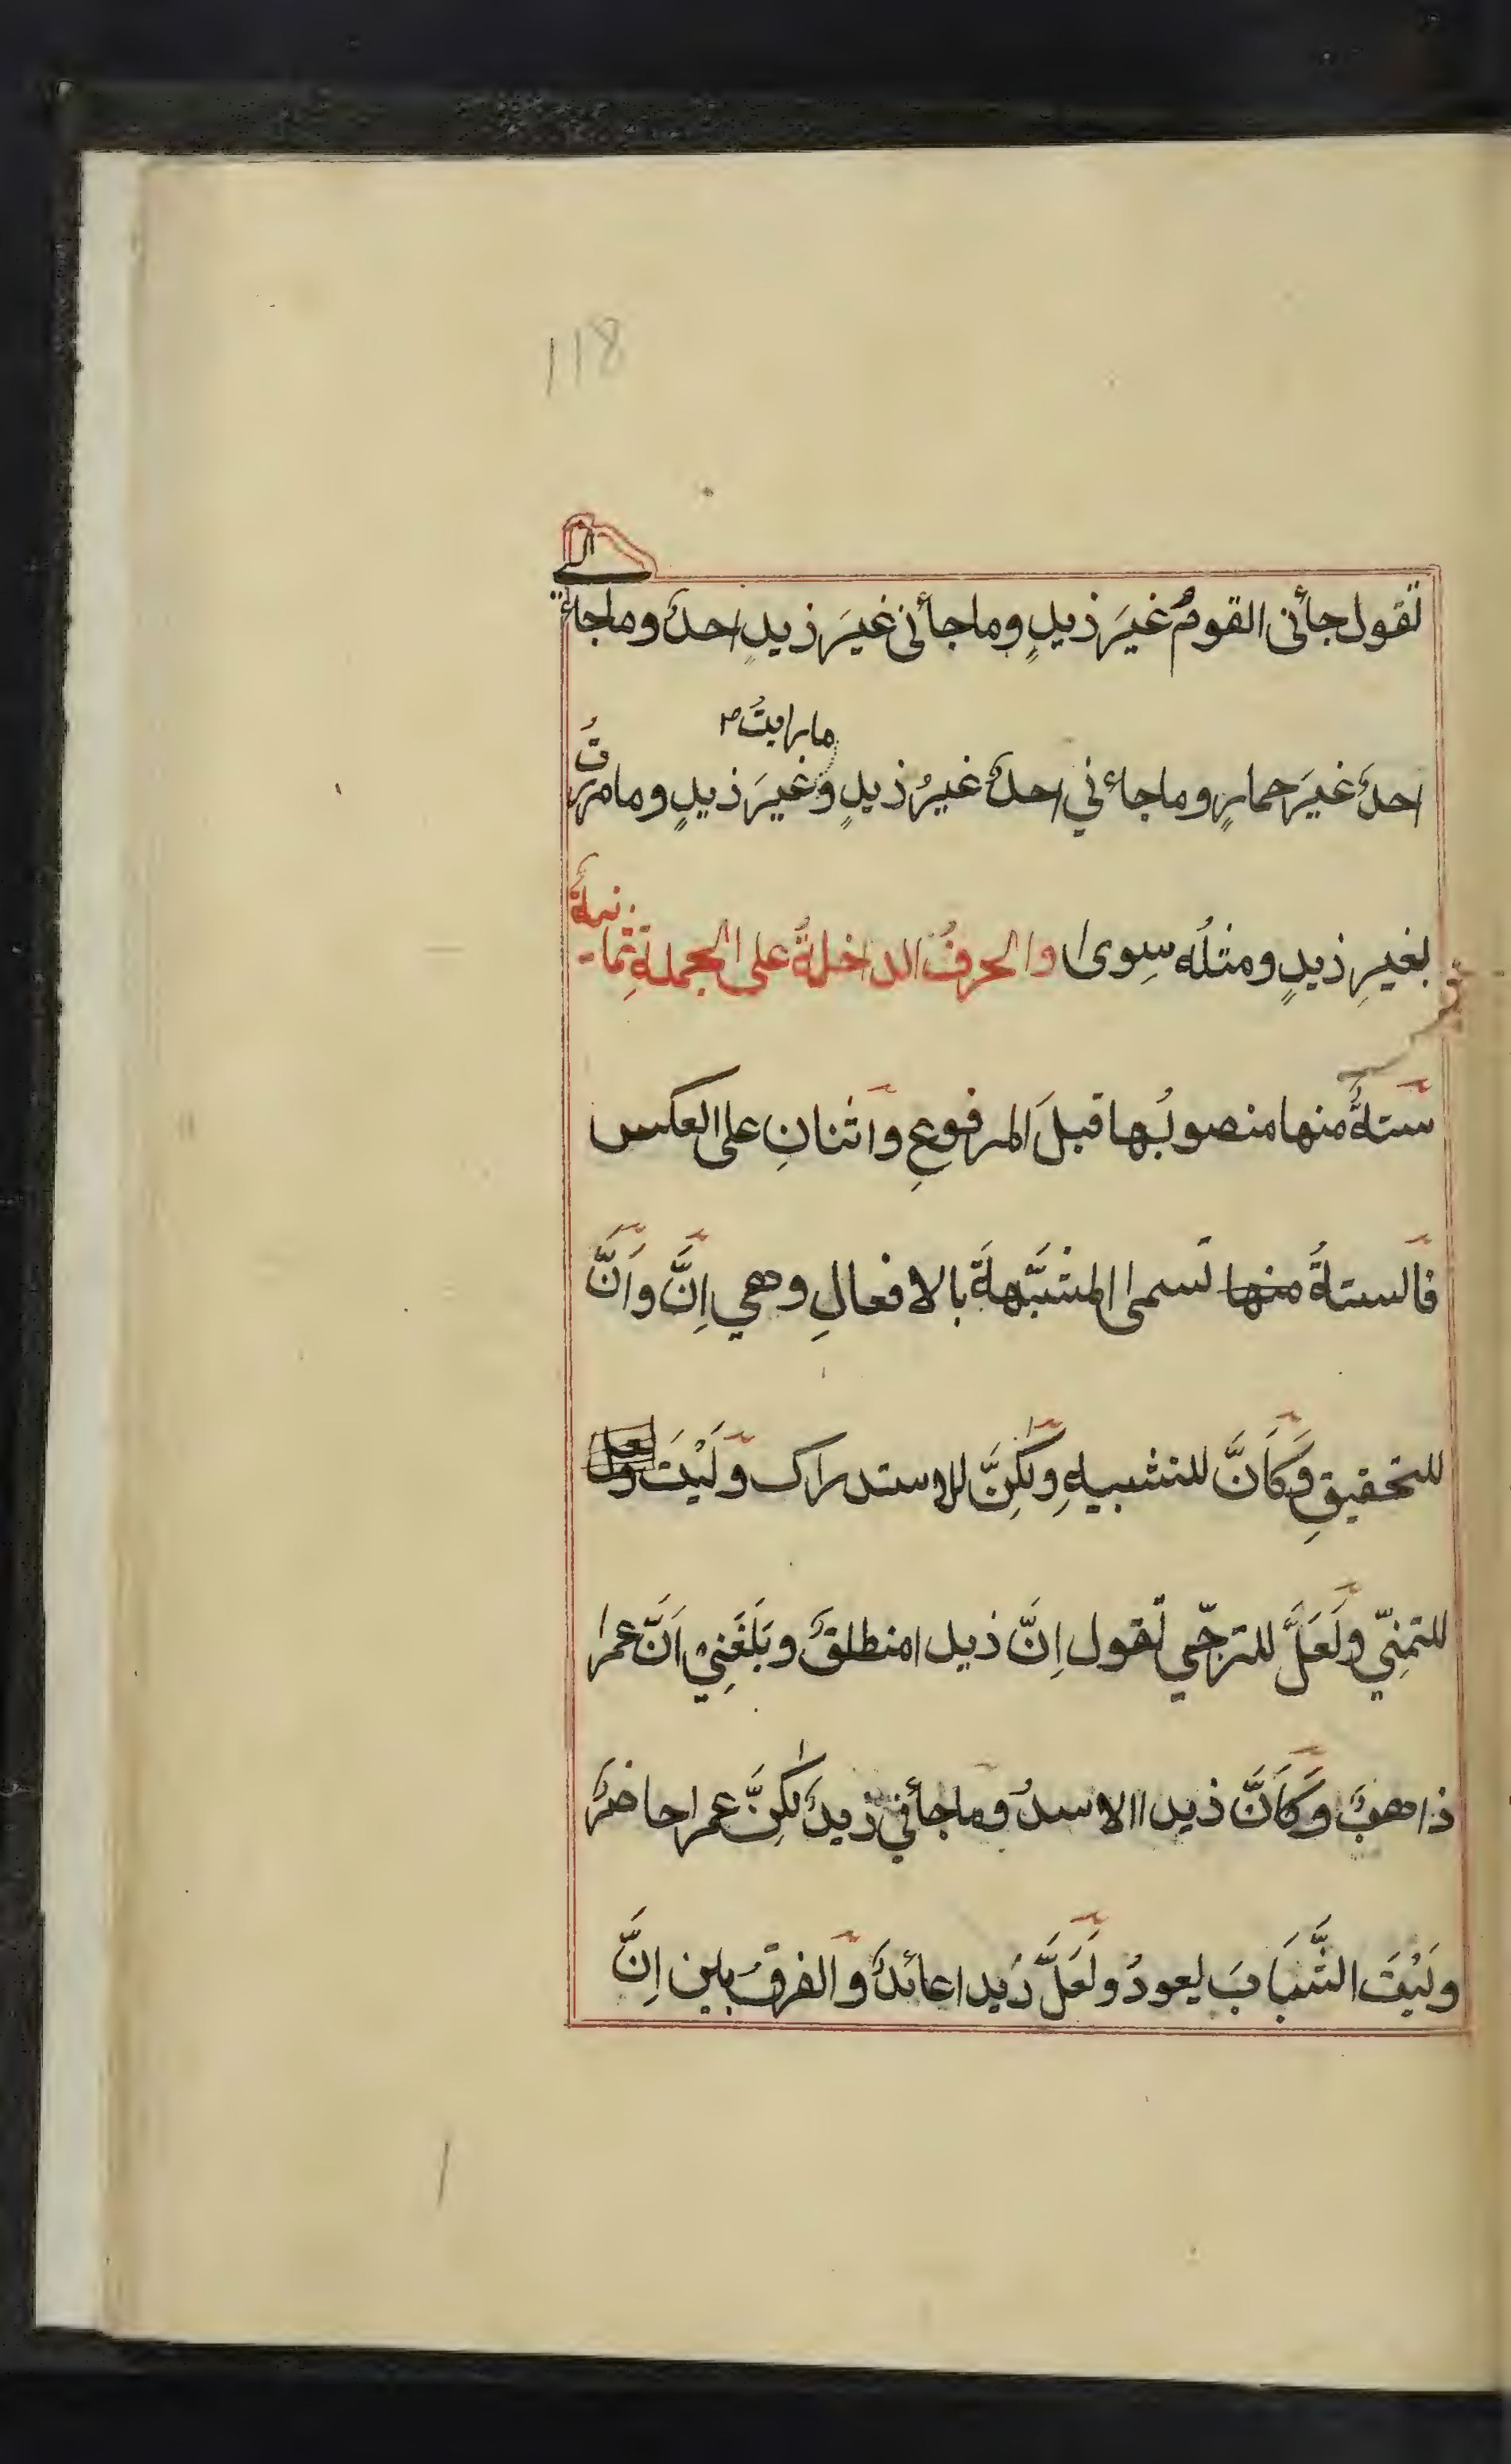 118
تقول جأنى القومُ غيرَ زيدٍ وما جأنى غيرَ زيدٍ احدٌ وما جاء
نى
ما رايتُ
احدٌ غيرَ حمارٍ وما جاءني احدٌ غيرُ زيدٍ وغيرَ زيدٍ وما مررتُ
بغيرِ زيدٍ ومثلُه سِوى والحرفُ الداخلةُ على الجملةِ ثمانيةٌ
ستةٌ منها منصوبُها قبلَ المرفوعِ واثنانِ على العكس
فالستةُ منها تسمى المشبَّهةَ بالافعالِ وهي اِنَّ واَنَّ
للتحقيقِ وكَاَنَّ للتشبيهِ ولٰكِنَّ للاستدراك ولَيْتَ ولعل
للتمنِّي ولَعَلَّ للترجّي تقول اِنَّ زيدا منطلقٌ وبَلَغَنِيْ اَنَّ عمرا
ذاهبٌ وكَاَنَّ زيدا الاسدُ وما جأني زيدٌ لٰكِنَّ عمرا حاضرٌ
ولَيْتَ الشَّبَابَ يعودُ ولَعَلَّ زَيدا عائدٌ والفرقُ بين اِنَّ